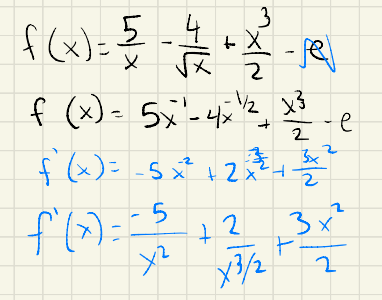 f(x) = 5/x - 4/√x + x³/2 - e
f (x) = 5x⁻¹ - 4x^(-1/2) + x³/2 - e
f'(x) = -5x⁻² + 2x^(-3/2) + 3x²/2
f'(x) = -5/x² + 2/x^(3/2) + 3x²/2